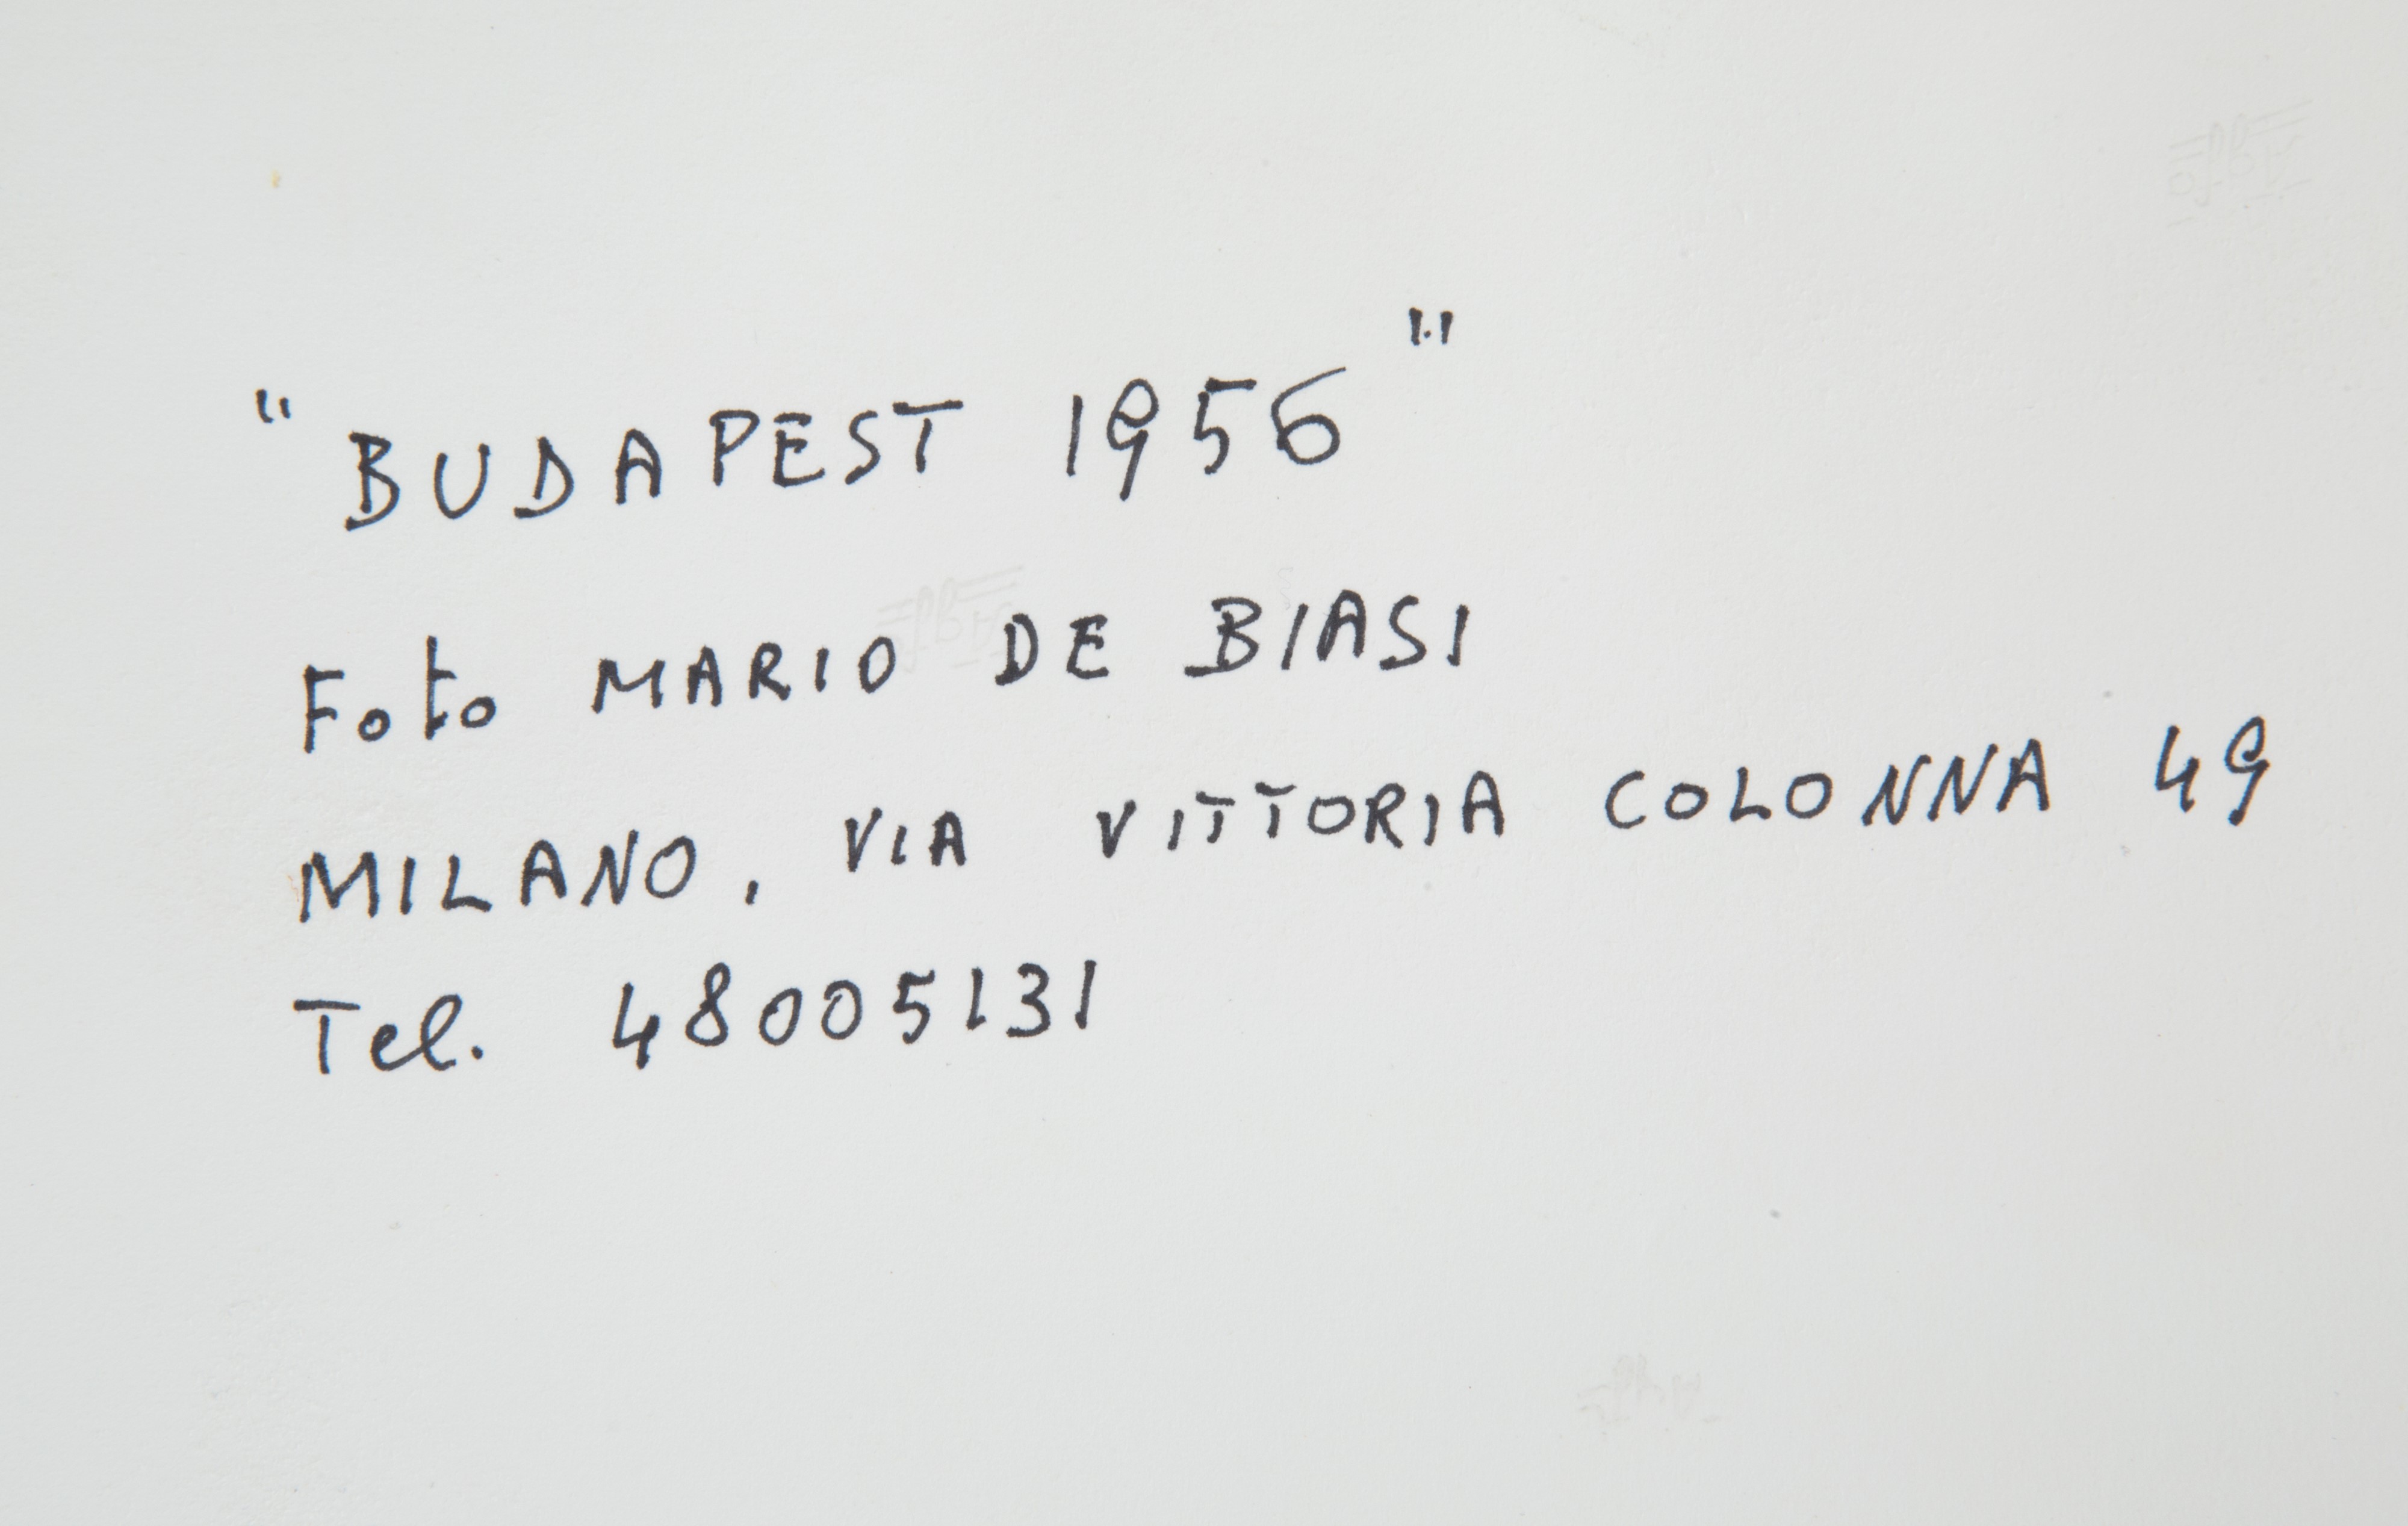 "BUDAPEST 1956"
Foto MARIO DE BIASI
MILANO, VIA VITTORIA COLONNA 49
Tel. 48005131